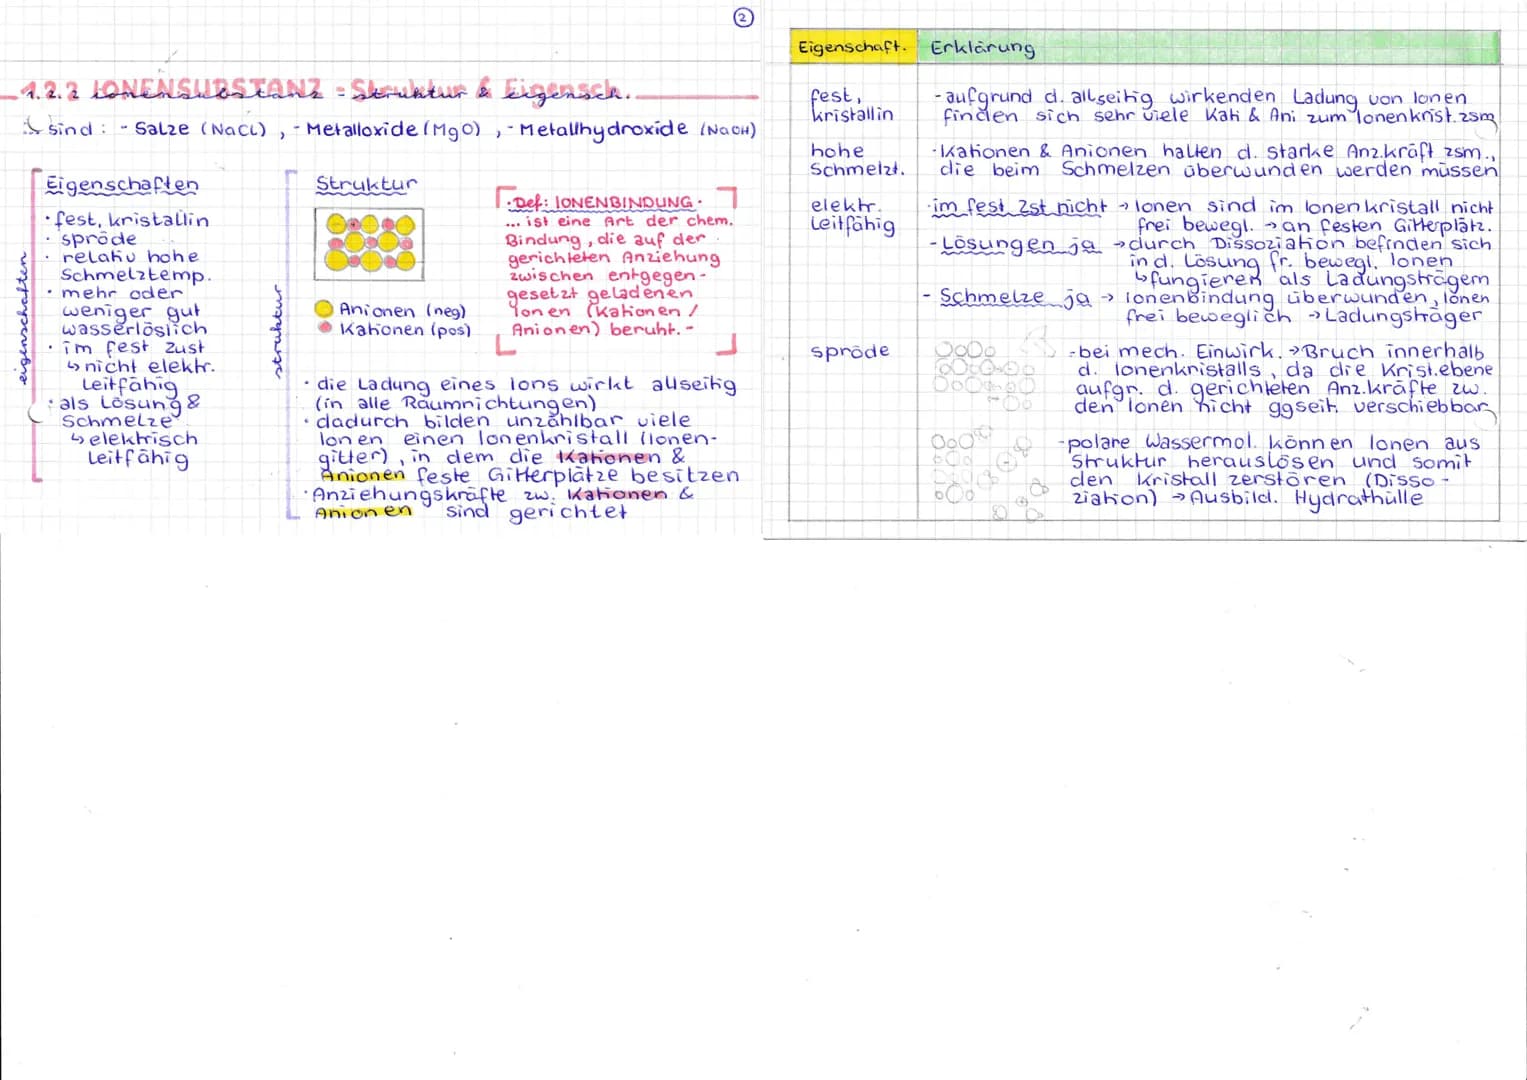 2
1.2.2 IONENSUBSTANZ - Struktur & Eigensch.
↳ sind : - Salze (NaCl) , - Metalloxide (MgO) , - Metallhydroxide (NaOH)
eigenschaften
Eigenschaften
· fest, kristallin
· spröde
· relativ hohe
Schmelztemp.
· mehr oder
weniger gut
wasserlöslich
· im fest Zust
↳ nicht elektr.
Leitfähig
· als Lösung &
Schmelze
↳ elektrisch
Leitfähig
struktur
Struktur
Anionen (neg)
Kationen (pos)
· Def: IONENBINDUNG ·
... ist eine Art der chem.
Bindung, die auf der
gerichteten Anziehung
zwischen entgegen-
gesetzt geladenen
Ionen (Kationen /
Anionen) beruht. -
· die Ladung eines Ions wirkt allseitig
(in alle Raumrichtungen)
· dadurch bilden unzählbar viele
Ionen einen Ionenkristall (Ionen-
gitter), in dem die Kationen &
Anionen feste Gitterplätze besitzen
· Anziehungskräfte zw. Kationen &
Anionen sind gerichtet
Eigenschaft. Erklärung
fest,
kristallin
- aufgrund d. allseitig wirkenden Ladung von Ionen
finden sich sehr viele Kati & Ani zum Ionenkrist. zsm
hohe
Schmelzt.
· Kationen & Anionen halten d. starke Anz.kräft zsm.,
die beim Schmelzen überwunden werden müssen
elektr.
Leitfähig
· im fest Zst nicht → Ionen sind im Ionenkristall nicht
frei bewegl. → an festen Gitterplätz.
- Lösungen ja → durch Dissoziation befinden sich
in d. Lösung fr. bewegl. Ionen
↳ fungieren als Ladungsträgern
- Schmelze ja → Ionenbindung überwunden, Ionen
frei beweglich → Ladungsträger
spröde
- bei mech. Einwirk. → Bruch innerhalb
d. Ionenkristalls, da die Krist.ebene
aufgr. d. gerichteten Anz.kräfte zw.
den Ionen nicht ggseit. verschiebbar
- polare Wassermol. können Ionen aus
Struktur herauslösen und somit
den Kristall zerstören (Disso-
ziation) → Ausbild. Hydrathülle